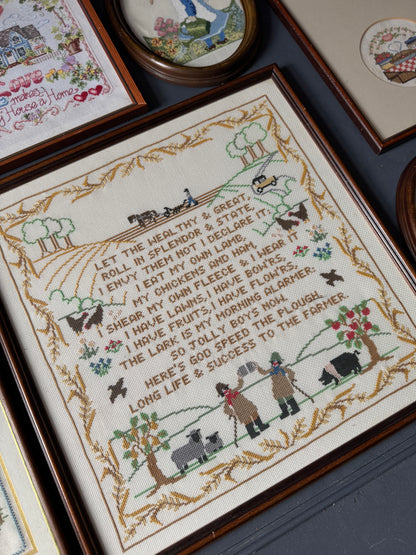 LOVE
makes
my House a Home
LET THE WEALTHY & GREAT,
ROLL IN SPLENDOR & STATE.
I ENVY THEM NOT I DECLARE IT.
I EAT MY OWN LAMB,
MY CHICKENS AND HAM.
I SHEAR MY OWN FLEECE & I WEAR IT.
I HAVE LAWNS, I HAVE BOW'RS.
I HAVE FRUITS, I HAVE FLOW'RS,
THE LARK IS MY MORNING ALARMER.
SO JOLLY BOYS NOW,
HERE'S GOD SPEED THE PLOUGH.
LONG LIFE & SUCCESS TO THE FARMER.